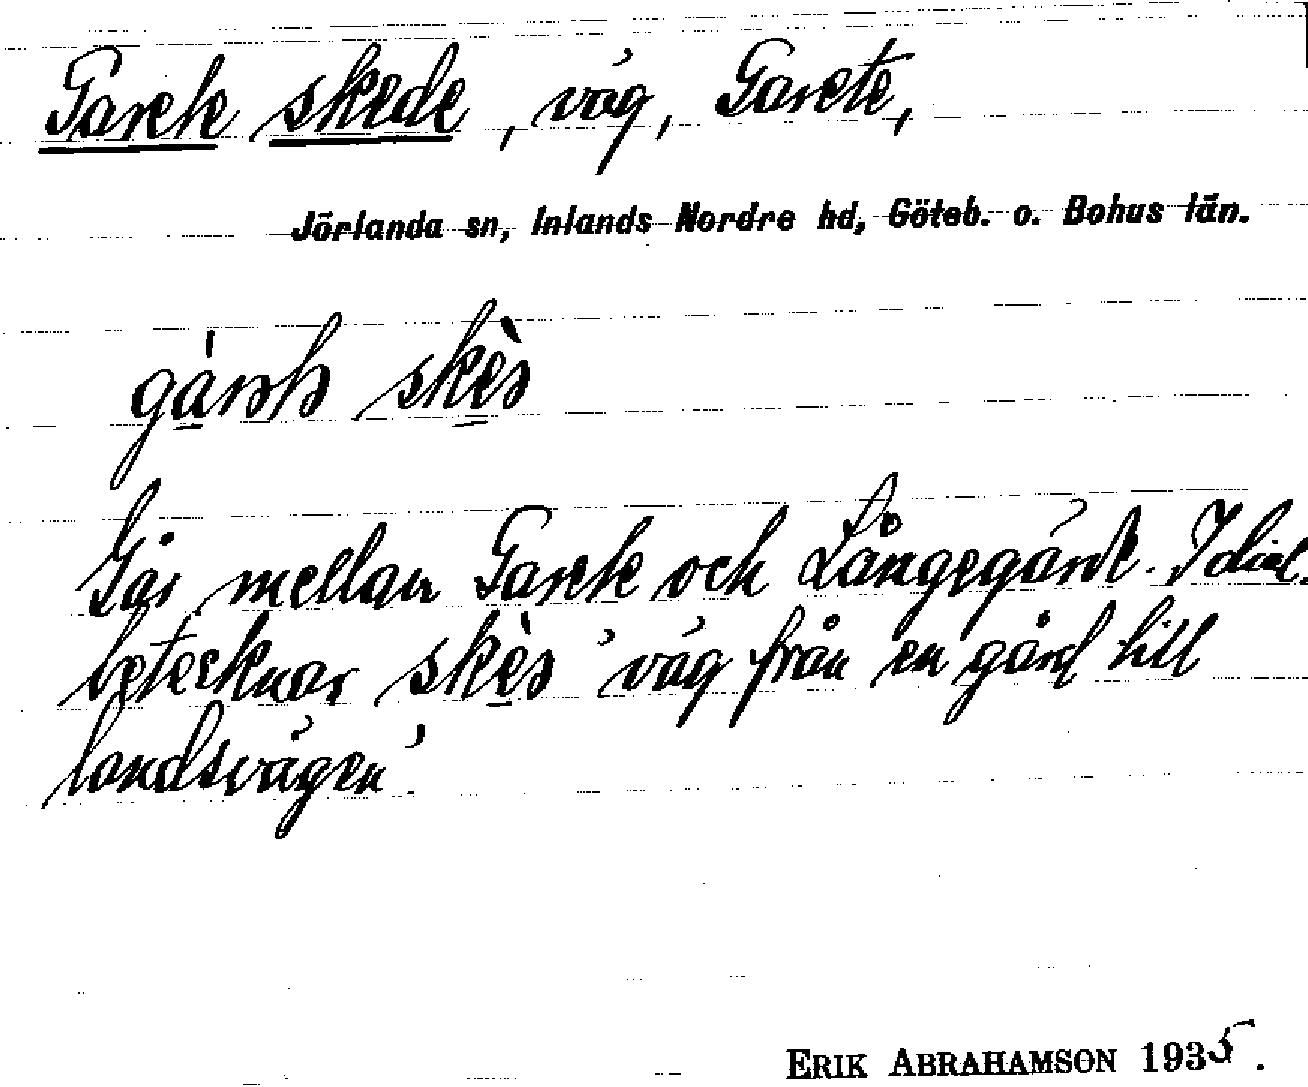 Garete skede, väg, Garete,
Jörlanda sn, Inlands Nordre hd, Göteb. o. Bohus län.
skès
Går mellan Garete och Långegärde. I dial.
betecknar skès 'väg från en gård till
landsvägen'.
ERIK ABRAHAMSON 1935.